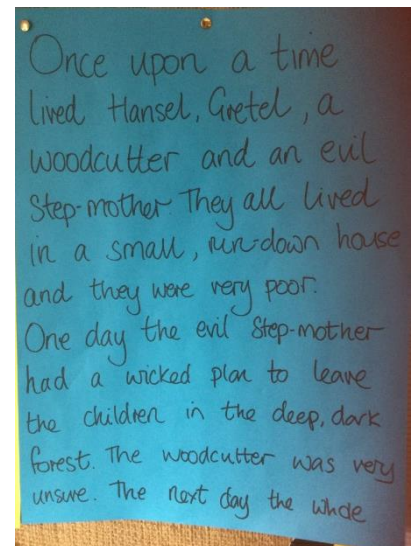 Once upon a time
lived Hansel, Gretel, a
woodcutter and an evil
Step-mother. They all lived
in a small, run-down house
and they were very poor.
One day the evil Step-mother
had a wicked plan to leave
the children in the deep, dark
forest. The woodcutter was very
unsure. The next day the whole